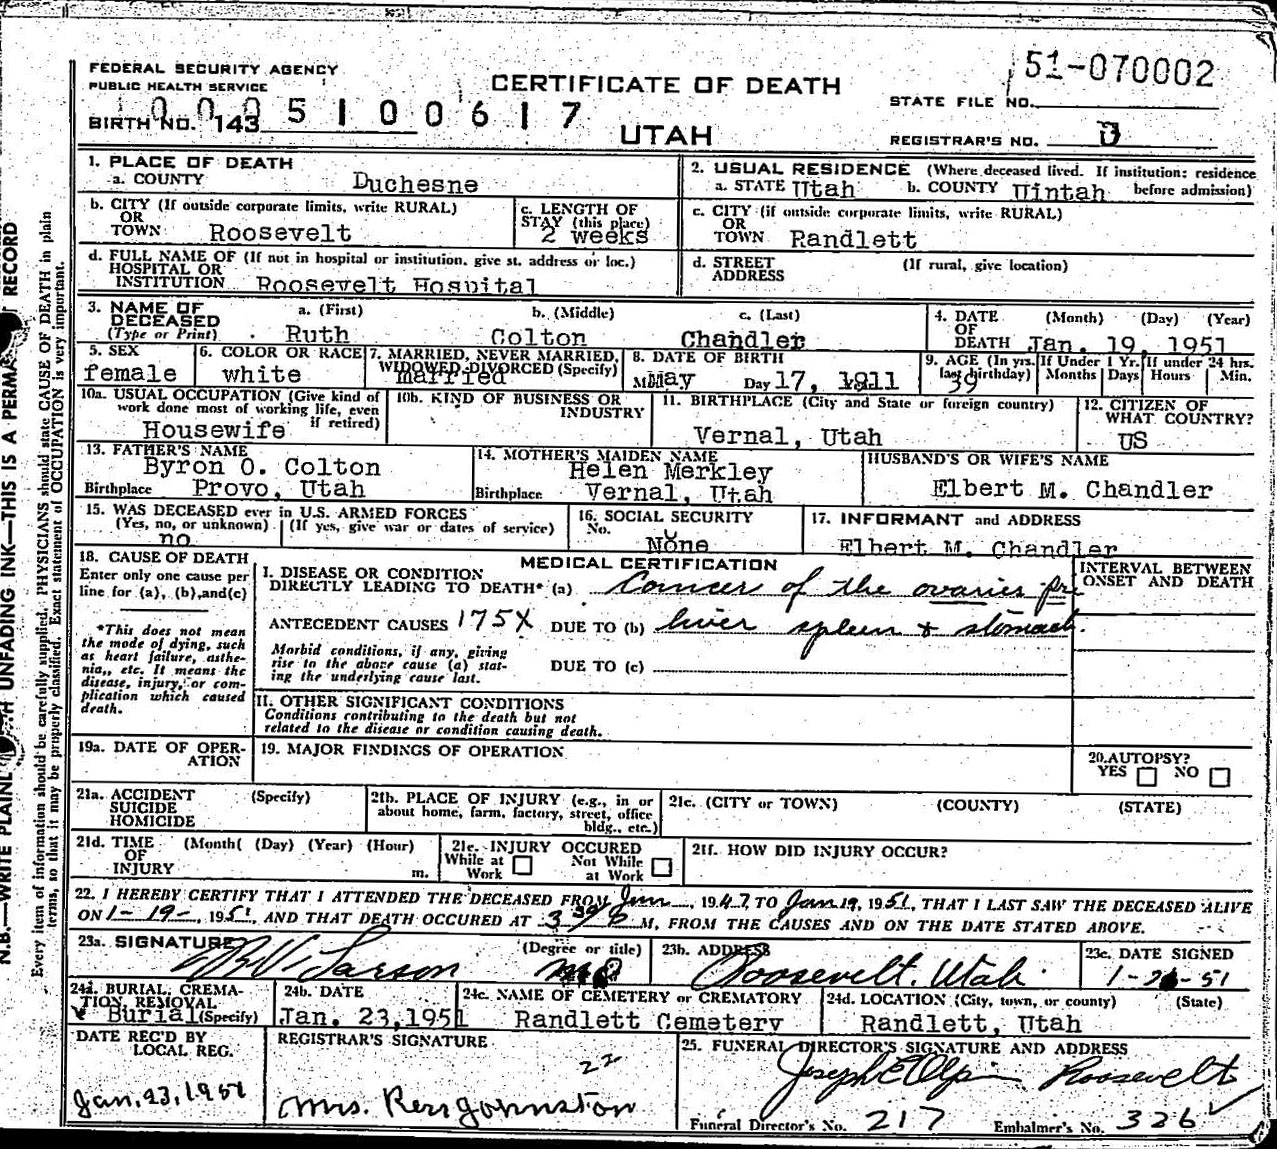 51-070002
FEDERAL SECURITY AGENCY
PUBLIC HEALTH SERVICE
CERTIFICATE OF DEATH
STATE FILE NO.
BIRTH NO. 143 5100617
UTAH
REGISTRAR'S NO.
1. PLACE OF DEATH
a. COUNTY Duchesne
2. USUAL RESIDENCE (Where deceased lived. If institution: residence before admission)
a. STATE Utah b. COUNTY Uintah
b. CITY (If outside corporate limits, write RURAL)
OR
TOWN Roosevelt
c. LENGTH OF
STAY (this place)
2 weeks
c. CITY (if outside corporate limits, write RURAL)
OR
TOWN Randlett
d. FULL NAME OF (If not in hospital or institution, give st. address or loc.)
HOSPITAL OR
INSTITUTION Roosevelt Hospital
d. STREET (If rural, give location)
ADDRESS
3. NAME OF DECEASED (Type or Print)
a. (First) b. (Middle) c. (Last)
Ruth Colton Chandler
4. DATE OF DEATH (Month) (Day) (Year)
Jan. 19, 1951
5. SEX
female
6. COLOR OR RACE
white
7. MARRIED, NEVER MARRIED,
WIDOWED, DIVORCED (Specify)
married
8. DATE OF BIRTH
May Day 17, 1911
9. AGE (In yrs. last birthday) If Under 1 Yr. If under 24 hrs.
39 Months Days Hours Min.
10a. USUAL OCCUPATION (Give kind of
work done most of working life, even
if retired)
Housewife
10b. KIND OF BUSINESS OR
INDUSTRY
11. BIRTHPLACE (City and State or foreign country)
Vernal, Utah
12. CITIZEN OF
WHAT COUNTRY?
US
13. FATHER'S NAME
Byron O. Colton
Birthplace Provo, Utah
14. MOTHER'S MAIDEN NAME
Helen Merkley
Birthplace Vernal, Utah
HUSBAND'S OR WIFE'S NAME
Elbert M. Chandler
15. WAS DECEASED ever in U.S. ARMED FORCES
(Yes, no, or unknown) (If yes, give war or dates of service)
no
16. SOCIAL SECURITY
No.
None
17. INFORMANT and ADDRESS
Elbert M. Chandler
18. CAUSE OF DEATH
Enter only one cause per
line for (a), (b), and (c)
*This does not mean
the mode of dying, such
as heart failure, asthe-
nia,, etc. It means the
disease, injury, or com-
plication which caused
death.
MEDICAL CERTIFICATION
INTERVAL BETWEEN
ONSET AND DEATH
I. DISEASE OR CONDITION
DIRECTLY LEADING TO DEATH* (a) Cancer of the ovaries
ANTECEDENT CAUSES 175X DUE TO (b) liver spleen & stomach.
Morbid conditions, if any, giving
rise to the above cause (a) stat-
ing the underlying cause last.
DUE TO (c)
II. OTHER SIGNIFICANT CONDITIONS
Conditions contributing to the death but not
related to the disease or condition causing death.
19a. DATE OF OPER-
ATION
19. MAJOR FINDINGS OF OPERATION
20. AUTOPSY?
YES NO
21a. ACCIDENT (Specify)
SUICIDE
HOMICIDE
21b. PLACE OF INJURY (e.g., in or
about home, farm, factory, street, office
bldg., etc.)
21c. (CITY or TOWN) (COUNTY) (STATE)
21d. TIME (Month( (Day) (Year) (Hour)
OF
INJURY m.
21e. INJURY OCCURED
While at Work Not While at Work
21f. HOW DID INJURY OCCUR?
22. I HEREBY CERTIFY THAT I ATTENDED THE DECEASED FROM , 1947 TO Jan 19, 1951, THAT I LAST SAW THE DECEASED ALIVE
ON 1-19-, 1951, AND THAT DEATH OCCURED AT 3 30 P M, FROM THE CAUSES AND ON THE DATE STATED ABOVE.
23a. SIGNATURE (Degree or title)
Larson
23b. ADDRESS
Roosevelt, Utah.
23c. DATE SIGNED
24a. BURIAL, CREMA-
TION, REMOVAL
Burial (Specify)
24b. DATE
Jan. 23, 1951
24c. NAME OF CEMETERY or CREMATORY
Randlett Cemetery
24d. LOCATION (City, town, or county) (State)
Randlett, Utah
DATE REC'D BY
LOCAL REG.
Jan. 23, 1951
REGISTRAR'S SIGNATURE
22
Mrs. Johnston
25. FUNERAL DIRECTOR'S SIGNATURE AND ADDRESS
Joseph E Olpin Roosevelt
Funeral Director's No. 217 Embalmer's No. 326
Every item of information should be carefully supplied. PHYSICIANS should state CAUSE OF DEATH in plain
terms, so that it may be properly classified. Exact statement of OCCUPATION is very important.